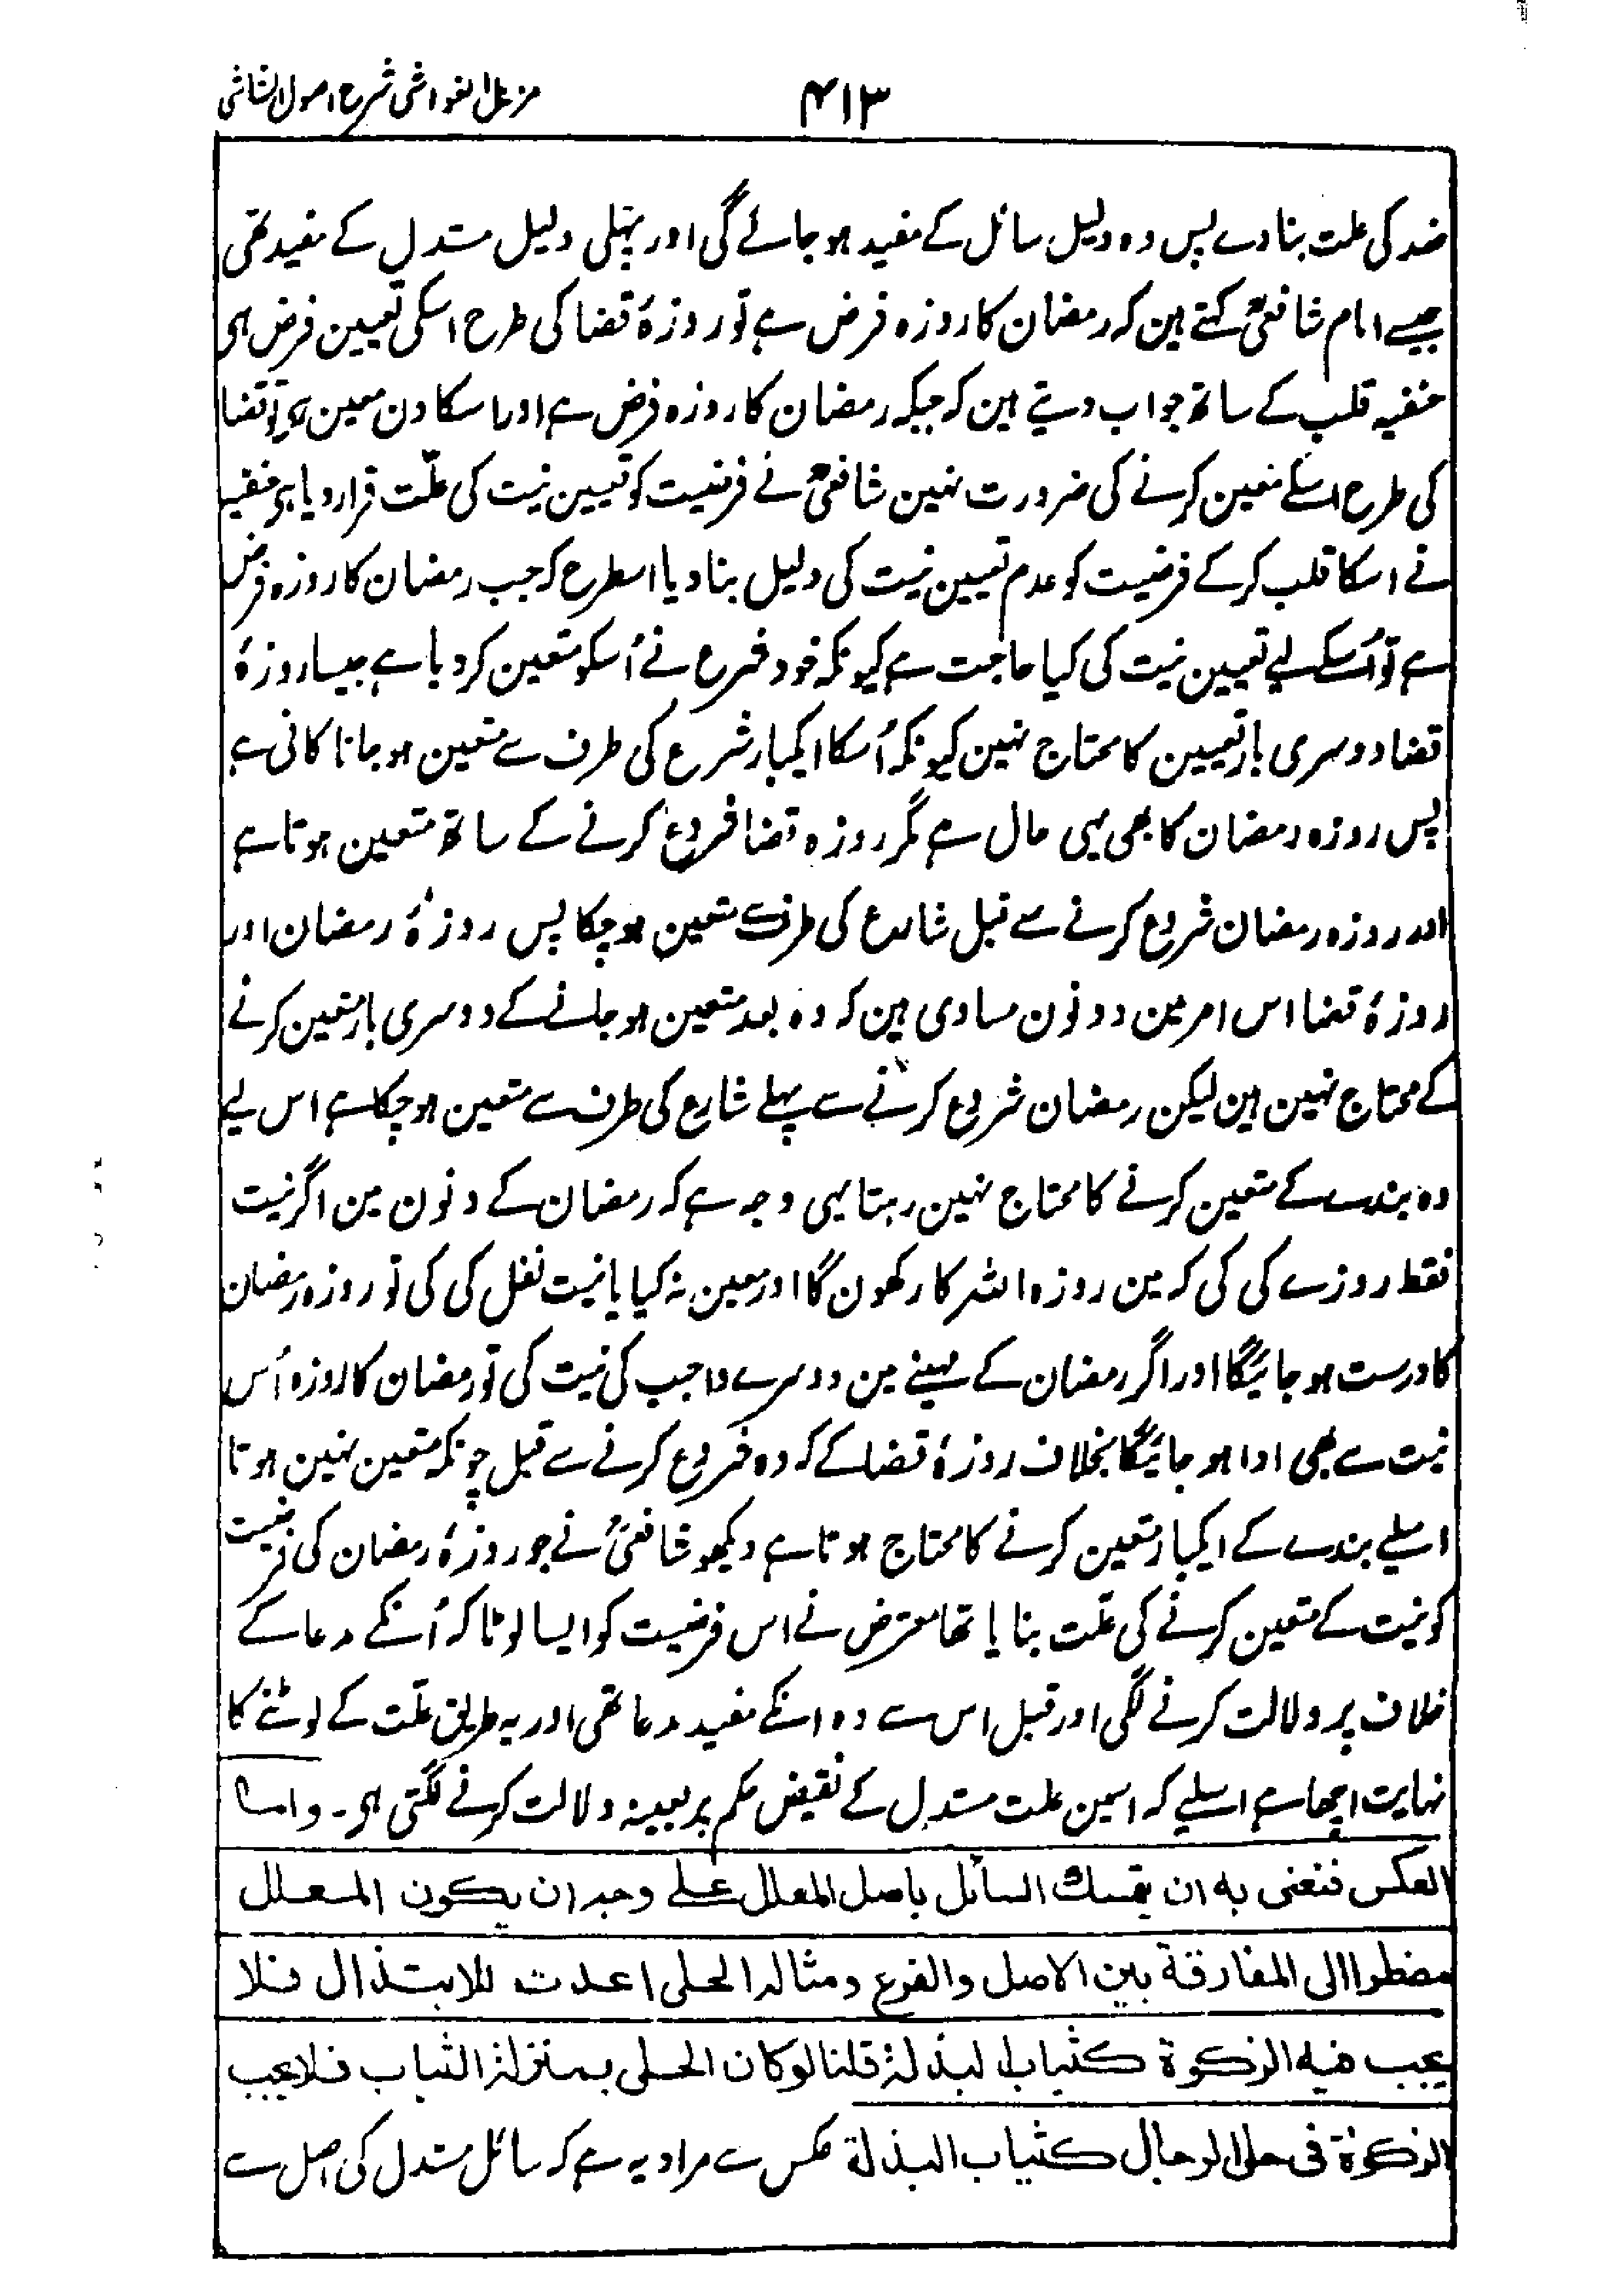 مزیل الغواشی شرح اصول الشاشی
۴۱۳
ضد کی علت بنا دے پس وہ دلیل سائل کے مفید ہو جائے گی اور پہلی دلیل مستدل کے مفید تھی
جیسے امام شافعیؒ کہتے ہین کہ رمضان کا روزہ فرض ہے تو روزۂ قضا کی طرح اسکی تعیین فرض ہی
حنفیہ قلب کے ساتھ جواب دیتے ہین کہ جبکہ رمضان کا روزہ فرض ہے اور اسکا دن معین ہی تو قضا
کی طرح اسکے معین کرنے کی ضرورت نہین شافعیؒ نے فرضیت کو تعیین نیت کی علّت قرار دیا ہی حنفیہ
نے اسکا قلب کرکے فرضیت کو عدم تعیین نیت کی دلیل بنا دیا اسطرح کہ جب رمضان کا روزہ فرض
ہے تو اُسکے لیے تعیین نیت کی کیا حاجت ہے کیونکہ خود شرع نے اُسکو متعین کر دیا ہے جیسا روزۂ
قضا دوسری بار تعیین کا محتاج نہین کیونکہ اُسکا ایکبار شرع کی طرف سے متعین ہو جانا کافی ہے
پس روزہ رمضان کا بھی یہی حال ہے مگر روزہ قضا شروع کرنے کے ساتھ متعین ہوتا ہے
اور روزہ رمضان شروع کرنے سے قبل شارع کی طرف سے متعین ہو چکا پس روزۂ رمضان اور
روزۂ قضا اس امر مین دونون مساوی ہین کہ وہ بعد متعین ہو جانے کے دوسری بار متعین کرنے
کے محتاج نہین ہین لیکن رمضان شروع کرنے سے پہلے شارع کی طرف سے متعین ہو چکا ہے اس لیے
وہ بندے کے متعین کرنے کا محتاج نہین رہتا یہی وجہ ہے کہ رمضان کے دنون مین اگر نیت
فقط روزے کی کی کہ مین روزہ اللہ کا رکھون گا اور معین نہ کیا یا نیت نفل کی کی تو روزہ رمضان
کا درست ہو جائیگا اور اگر رمضان کے مہینے مین دوسرے واجب کی نیت کی تو رمضان کا روزہ اُس
نیت سے بھی ادا ہو جائیگا بخلاف روزۂ قضا کے کہ وہ شروع کرنے سے قبل چونکہ متعین نہین ہوتا
اسلیے بندے کے ایکبار متعین کرنے کا محتاج ہوتا ہے دیکھو شافعیؒ نے جو روزۂ رمضان کی فرضیت
کو نیت کے متعین کرنے کی علّت بنایا تھا معترض نے اس فرضیت کو ایسا لوٹا کہ اُنکے مدعا کے
خلاف پر دلالت کرنے لگی اور قبل اس سے وہ انکے مفید مدعا تھی اور یہ طریق علّت کے لوٹنے کا
نہایت اچھا ہے اسلیے کہ اسمین علت مستدل کے نقیض حکم پر بعینہ دلالت کرنے لگتی ہی۔ واما
العکس فنعنی به ان یتمسك السائل باصل المعلل علی وجه ان یکون المعلل
مضطرا الی المفارقة بین الاصل والفرع ومثاله الحلی اعدت للابتذال فلا
یجب فیه الزکوة کثیاب البذلة قلنا لو کان الحلی بمنزلة الثیاب فلا یجب
الزکوة فی حلی الرجال کثیاب البذلة عکس سے مراد یہ ہے کہ سائل مستدل کی اصل سے